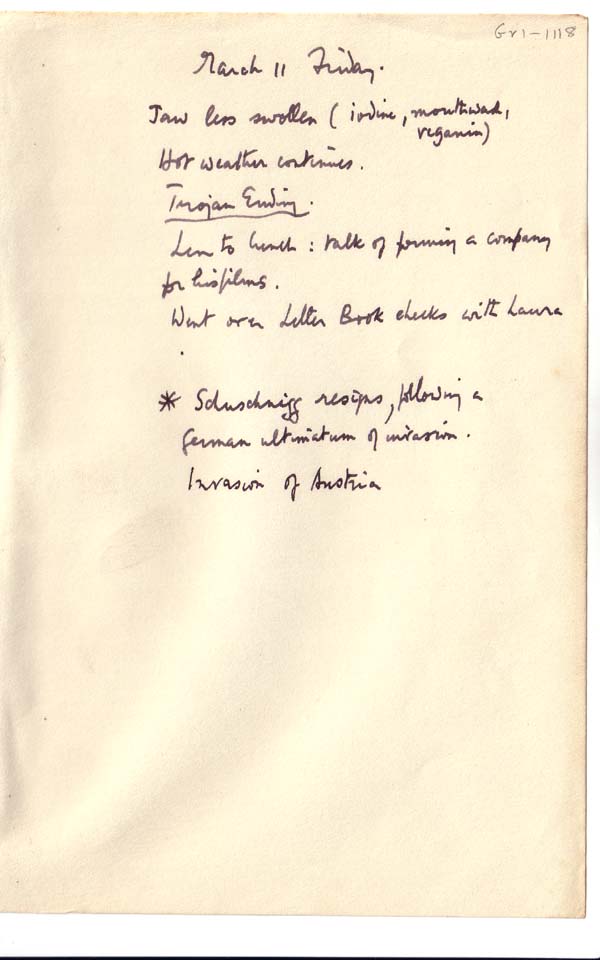 Gr1-1118
March 11 Friday.
Jaw less swollen (iodine, mouthwash,
veganin)
Hot weather continues.
Trojan Ending.
Len to lunch: talk of forming a company
for his films.
Went over Letter Book checks with Laura
.
* Schuschnigg resigns, following a
German ultimatum of invasion.
Invasion of Austria